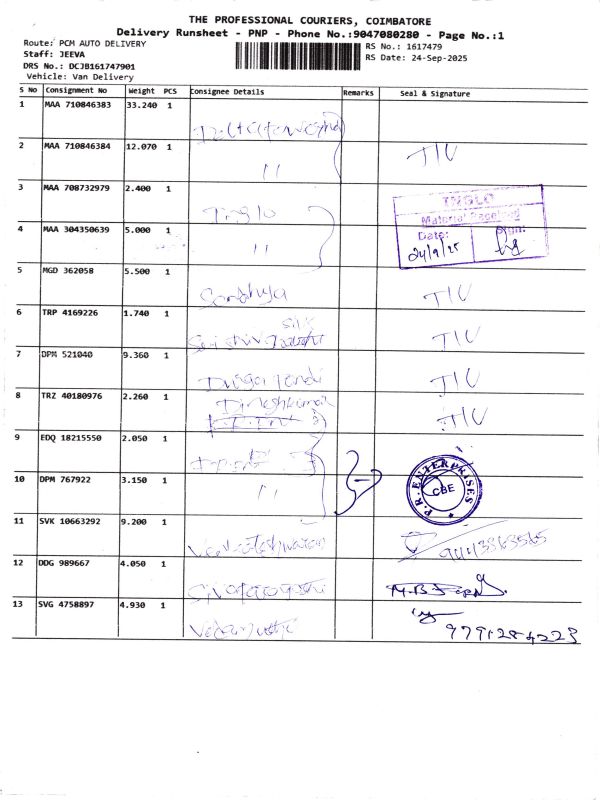 THE PROFESSIONAL COURIERS, COIMBATORE
Delivery Runsheet - PNP - Phone No.:9047080280 - Page No.:1
Route: PCM AUTO DELIVERY
Staff: JEEVA
DRS No: DCJB161747901
Vehicle: Van Delivery
RS No.: 1617479
RS Date: 24-Sep-2025
S No Consignment No Weight PCS Consignee Details Remarks Seal & Signature
1 MAA 710846383 33.240 1
2 MAA 710846384 12.070 1 11 TIU
3 MAA 708732979 2.400 1 Inglo
INGLO
Material Received
Date: Sign:
24/9/25
4 MAA 304350639 5.000 1 11
5 MGD 362058 5.500 1 Sandhya TIU
6 TRP 4169226 1.740 1 TIU
7 DPM 521040 9.360 1 TIU
8 TRZ 40180976 2.260 1 Dineshkumar TIU
9 EDQ 18215550 2.050 1
10 DPM 767922 3.150 1 11
P.R. ENTERPRISES
CBE
11 SVK 10663292 9.200 1
12 DDG 989667 4.050 1
13 SVG 4758897 4.930 1